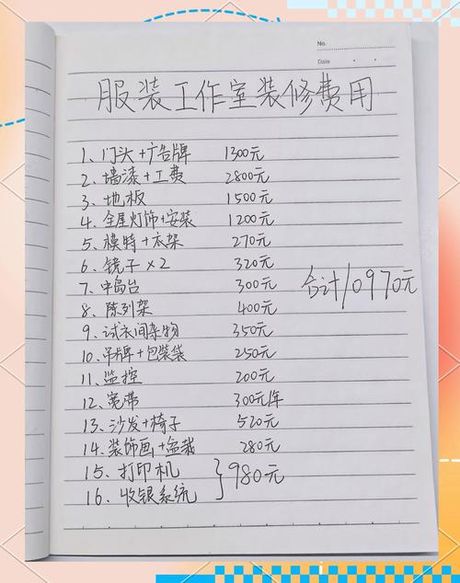 No.
Date
服装工作室装修费用
1、门头+广告牌 1300元
2、墙漆+工费 2800元
3、地板 1500元
4、全屋灯饰+安装 1200元
5、模特+衣架 270元
6、镜子×2 320元
7、中岛台 300元
合计10970元
8、陈列架 400元
9、试衣间杂物 350元
10、吊牌+包装袋 250元
11、监控 200元
12、宽带 300元/年
13、沙发+椅子 520元
14、装饰画+盆栽 280元
15、打印机
16、收银系统 } 980元